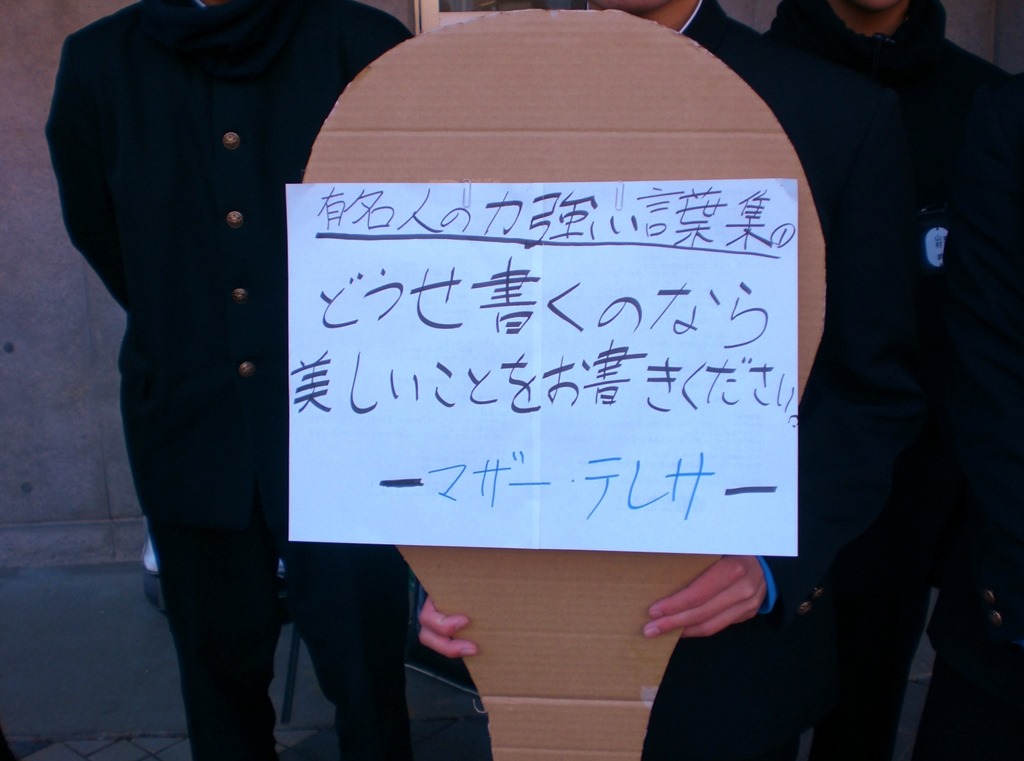 有名人の力強い言葉集①
どうせ書くのなら
美しいことをお書きください。
ーマザー・テレサー